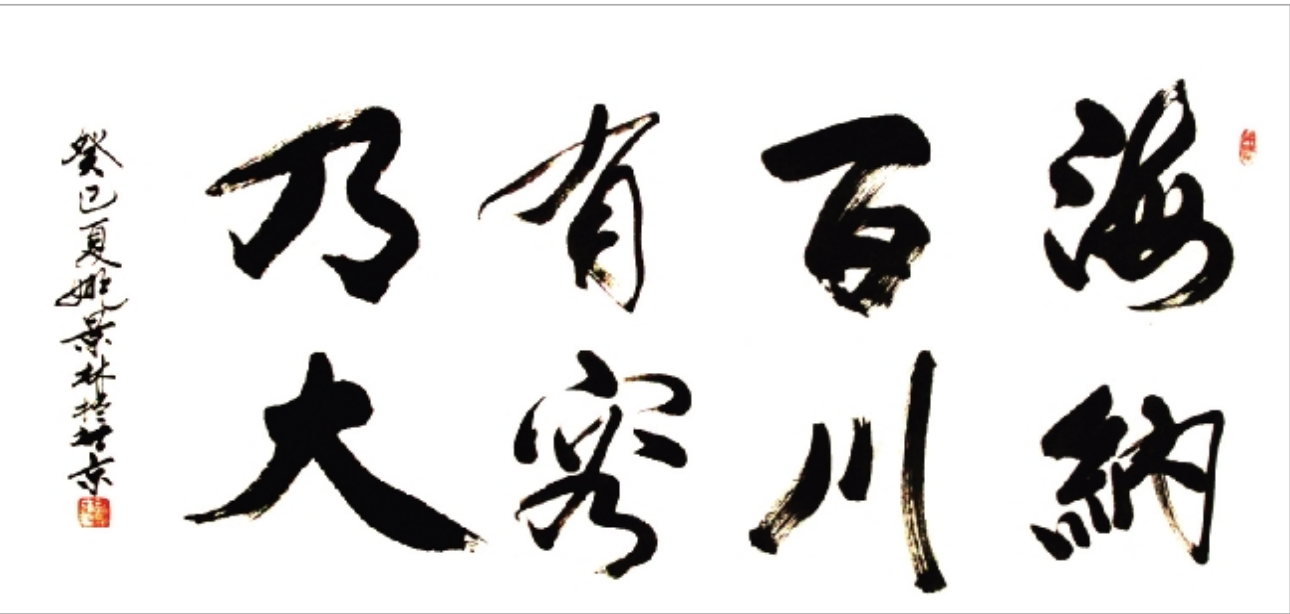 海納
百川
有容
乃大
癸巳夏姚景林於北京